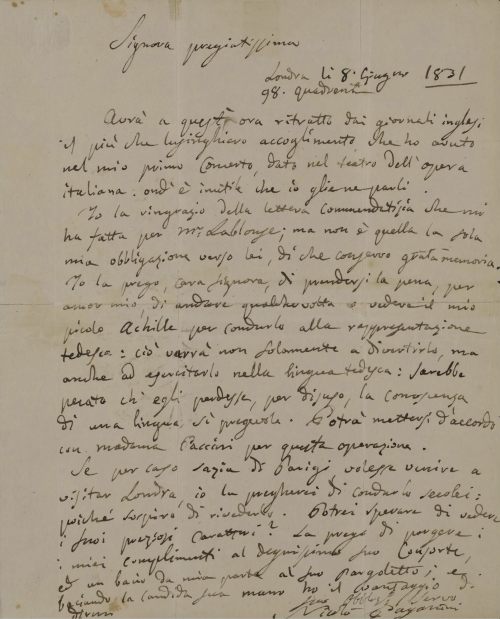 Signora pregiatissima
Londra li 8. Giugno 1831
98. quadrant
Avrà a quest' ora ritratto dai giornali inglesi
il più che lusinghiero accoglimento, che ho avuto
nel mio primo Concerto, dato nel teatro dell'opera
italiana. ond' è inutile che io gliene parli.
Io la ringrazio della lettera commendatizia che mi
ha fatta per Mr Lablonse; ma non è quella la sola
mia obbligazione verso lei, di che conservo grata memoria.
Io la prego, cara Signora, di prendersi la pena, per
amor mio, di andare qualche volta a vedere il mio
picolo Achille per condurlo alla rappresentazione
tedesca: ciò varrà non solamente a divertirlo, ma
anche ad esercitarlo nella lingua tedesca: Sarebbe
pecato ch' egli perdesse, per disuso, la conoscenza
di una lingua sì pregevole. Potrà mettersi d'accordo
con madama Paccini per questa operazione.
Se per caso sazia di Parigi volesse venire a
visitar Londra, io la pregherei di condurlo seco lei:
poiché sospiro di rivederlo. Potrei sperare di vedere
i suoi preziosi caratteri? La prego di porgere i
miei complimenti al degnissimo suo Consorte,
ed un bacio da mia parte al suo Pargoletto; e
baciando la candida sua mano ho il vantaggio di
dirmi
Suo Servo
Nicolò Paganini